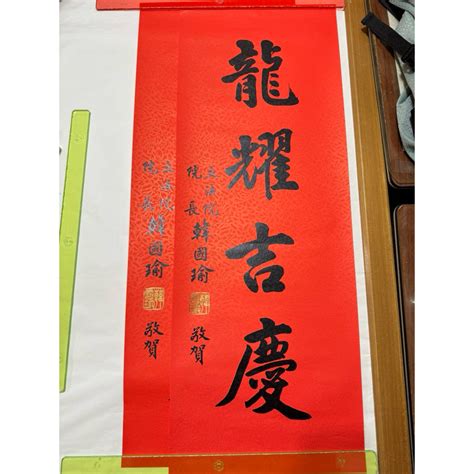 龍耀吉慶
立法院
院長 韓國瑜 敬賀
立法院
院長 韓國瑜 敬賀